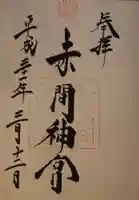 奉拝
赤間神宮
平成三十一年三月十二日